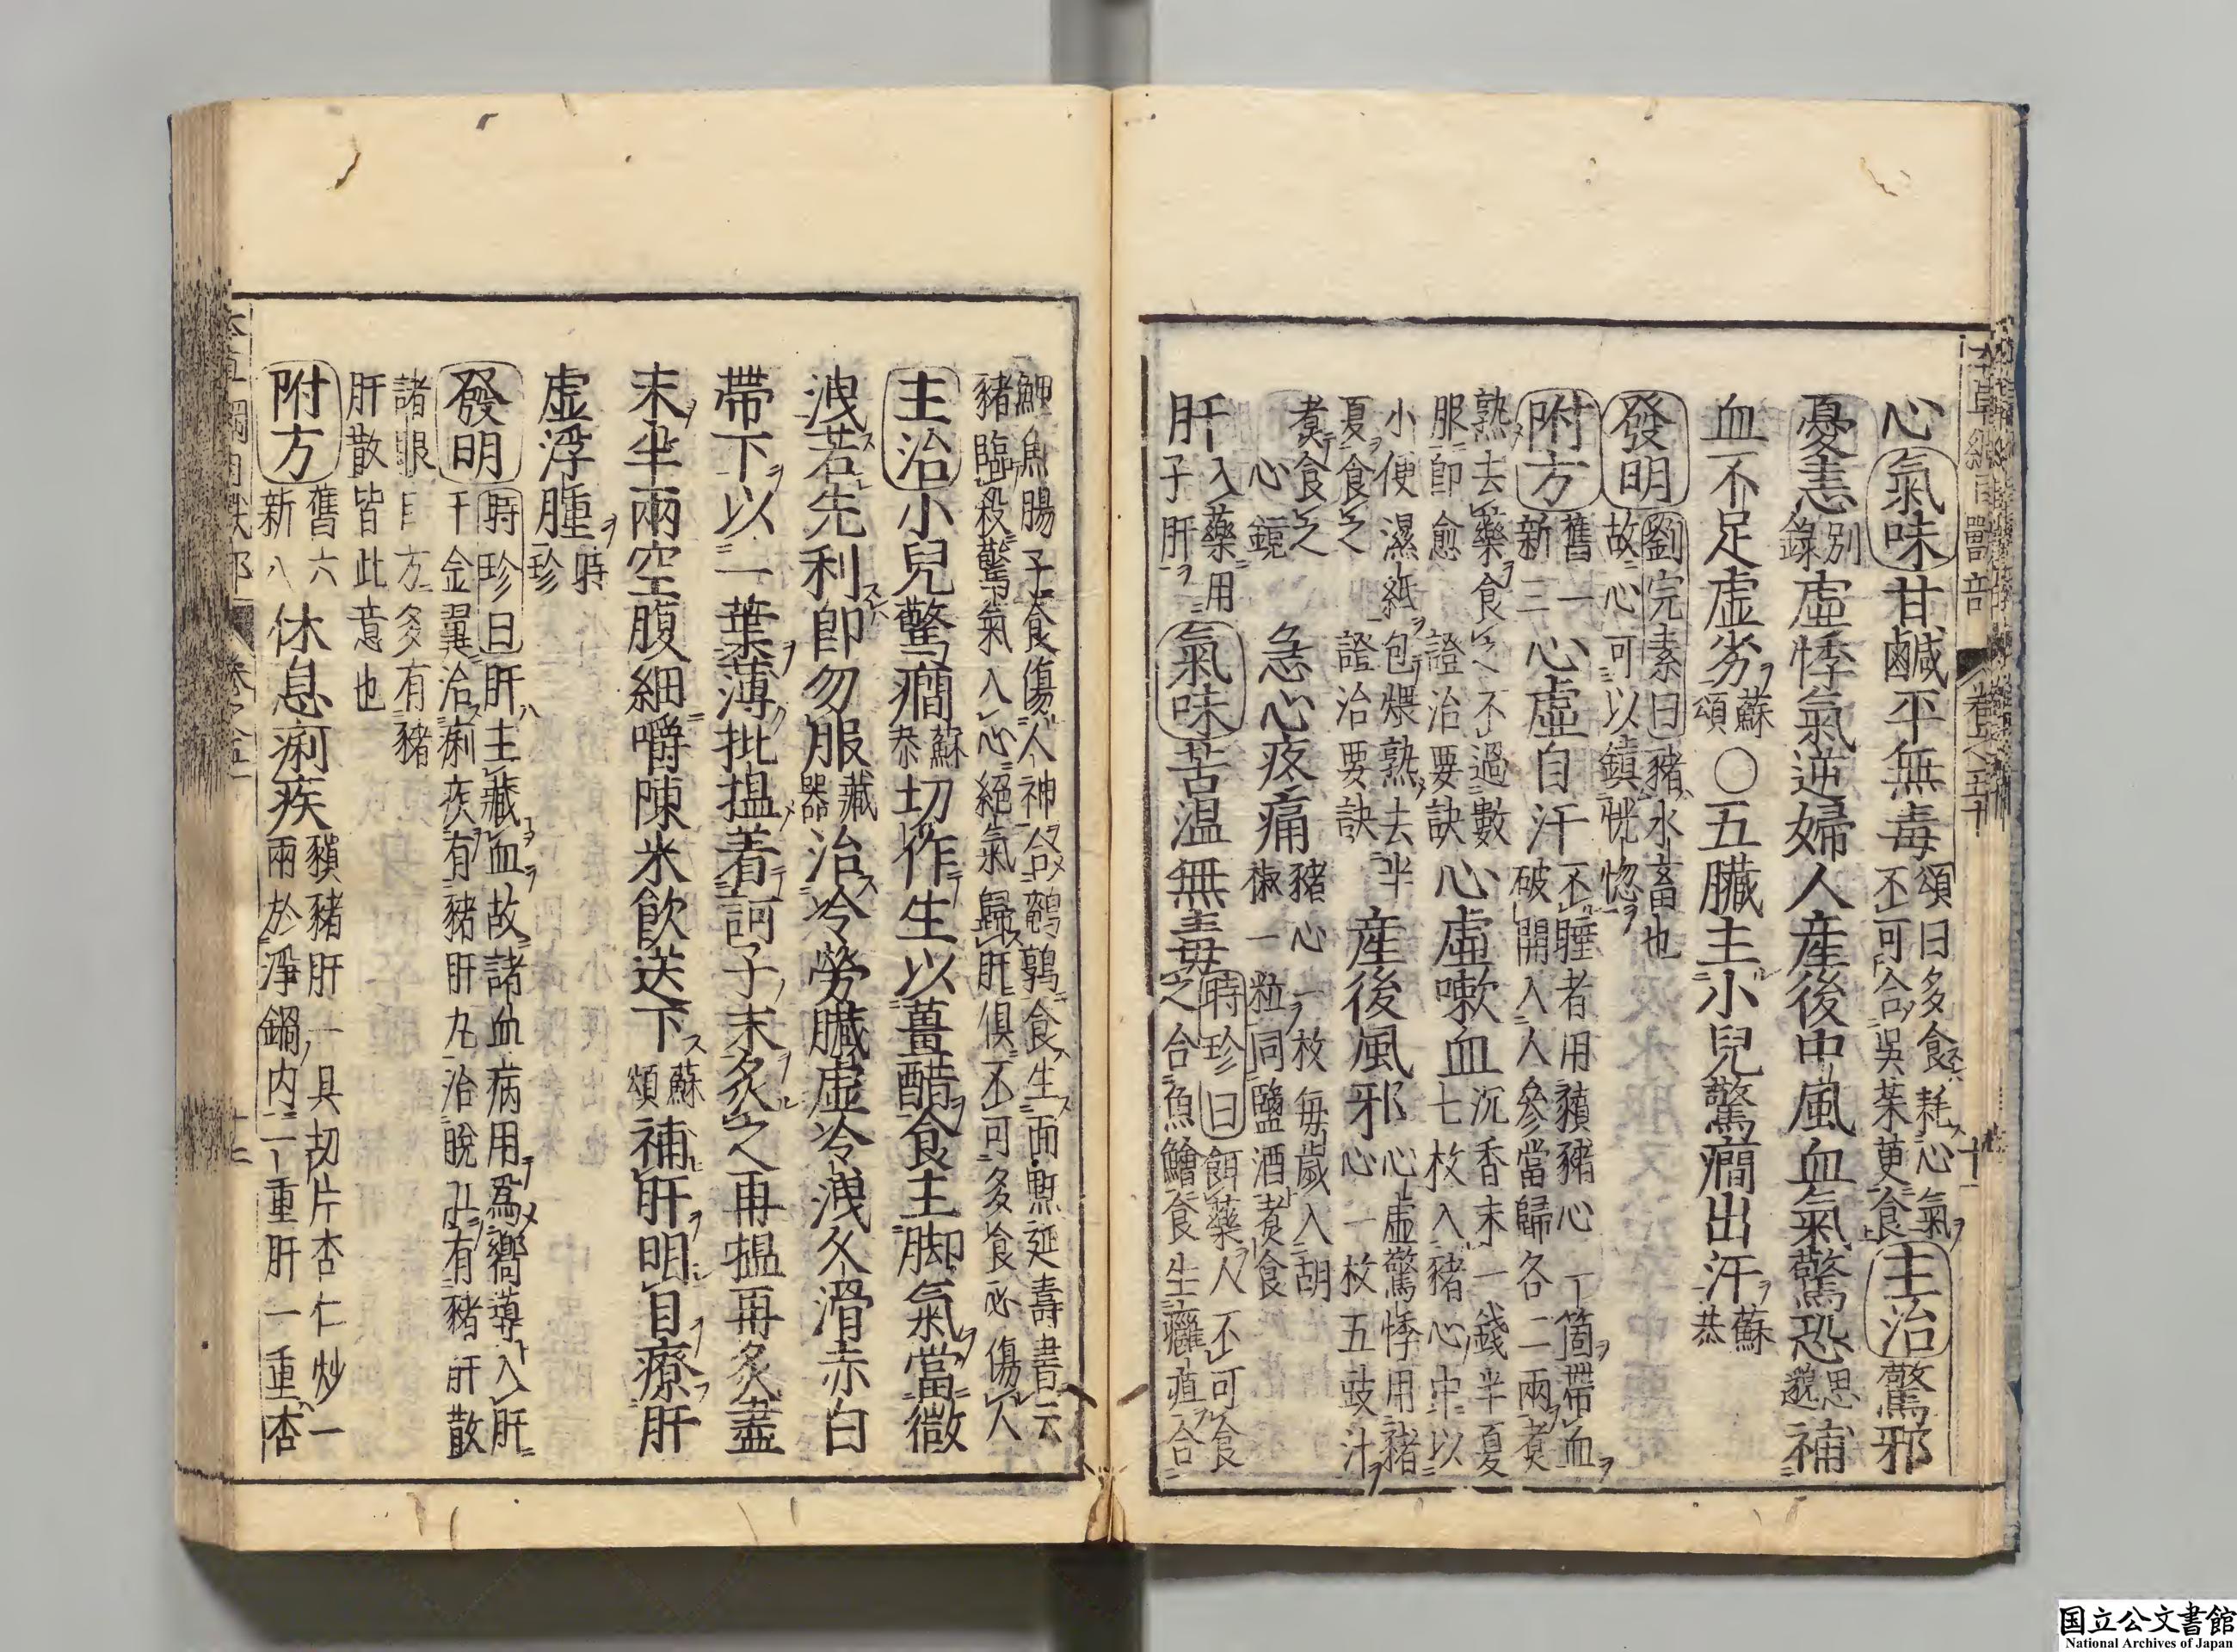 本草綱目獸部 卷之五十 十一
心氣味甘鹹平無毒頌曰多食耗心氣不可合吳茱萸食主治驚邪
憂恚別錄虛悸氣逆婦人産後中風血氣驚恐思邈補
血不足虛劣蘇頌○五臟主小兒驚癇出汗蘇恭
發明劉完素曰豬水畜也故心可以鎮恍惚
附方舊一新三心虛自汗不睡者用豶豬心一箇帶血破開入人參當歸各二兩煑
熟去藥食之不過數服即愈證治要訣心虛嗽血沉香末一錢半夏七枚入豬心中以
小便濕紙包煨熟去半夏食之證治要訣産後風邪心虛驚悸用豬心一枚五豉汁
煑食之心鏡急心疼痛豬心一枚每歲入胡椒一粒同鹽酒煑食
肝入藥用子肝氣味苦温無毒時珍曰餌藥人不可食之合魚鱠食生癰疽合
鯉魚腸子食傷人神合鵪鶉食生面䵟延壽書云
豬臨殺驚氣入心絕氣歸肝俱不可多食必傷人
主治小兒驚癇蘇恭切作生以薑醋食主脚氣當微
洩若先利即勿服藏器治冷勞臟虛冷洩久滑赤白
帶下以一葉薄批揾着訶子末炙之再揾再炙盡
末半兩空腹細嚼陳米飲送下蘇頌補肝明目療肝
虛浮腫時珍
發明時珍曰肝主藏血故諸血病用爲嚮導入肝千金翼治痢疾有豬肝丸治脫肛有豬肝散
諸眼目方多有豬肝散皆此意也
附方舊六新八休息痢疾豶豬肝一具切片杏仁炒一兩於淨鍋内一重肝一重杏
国立公文書館
National Archives of Japan